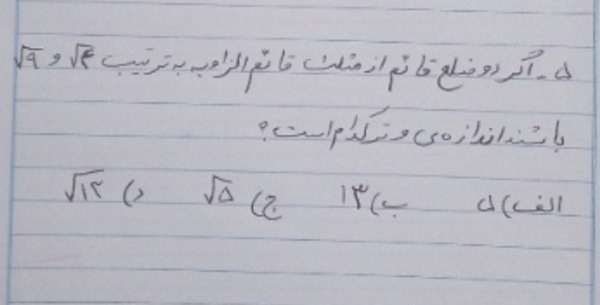 ۵ـ اگر دو ضلع قائم از مثلث قائم الزاویه به ترتیب √۴ و √۹
باشند اندازه ی وتر کدام است؟
الف) ۵ ب) ۱۳ ج) √۵ د) √۱۳